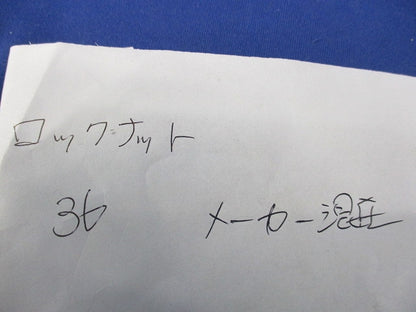 ロックナット
36 メーカー混在